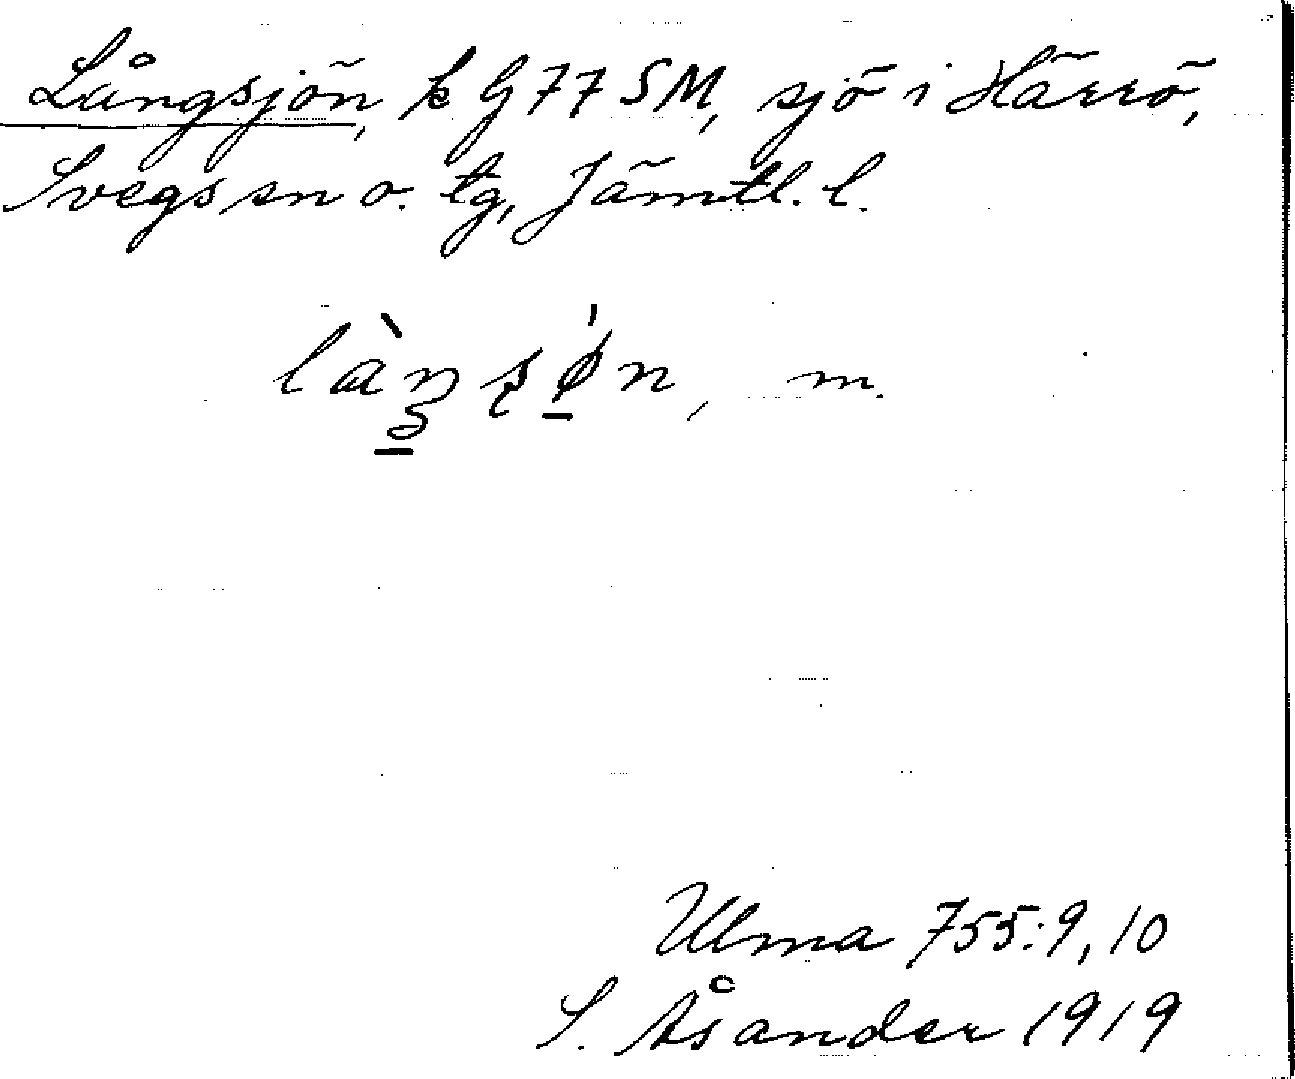 Långsjön, k G77 SM, sjö i Härrö,
Svegs sn o. tg, Jämtl. l.
m.
Ulma 755:9, 10
S. Åsander 1919